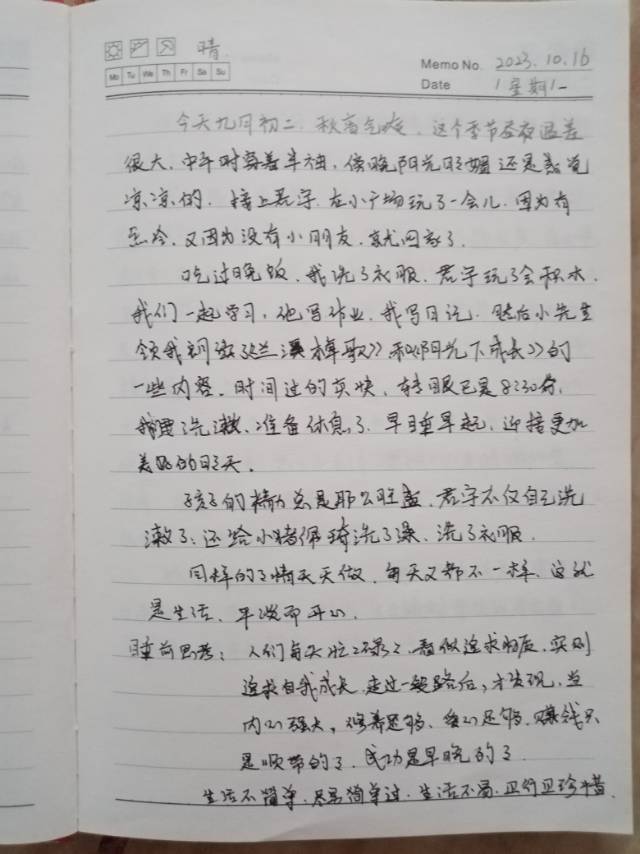 晴
Memo No. 2023.10.16
Mo Tu We Th Fr Sa Su
Date 星期一
今天九月初二，秋高气爽，这个季节昼夜温差
很大，中午时穿着半袖，傍晚阳光明媚还是感觉
凉凉的。接上君宇，在小广场玩了一会儿，因为有
点冷，又因为没有小朋友，就回家了。
吃过晚饭，我洗了衣服，君宇玩了会积木，
我们一起学习，他写作业，我写日记，然后小先生
领我朗读《兰溪棹歌》和《阳光下成长》的
一些内容，时间过的真快，转眼已是8:30分，
我要洗漱，准备休息了，早睡早起，迎接更加
美好的明天。
孩子的精力总是那么旺盛，君宇不仅自己洗
漱了，还给小猪佩琦洗了澡，洗了衣服。
同样的事情天天做，每天又都不一样，这就
是生活，平淡而开心。
睡前思考：人们每天忙忙碌碌，看似追求物质，实则
追求自我成长，走过一段路后，才发现，当
内心强大，修养足够，细心足够，赚钱只
是顺带的事，成功是早晚的事。
生活不简单，尽量简单过，生活不易，且行且珍惜